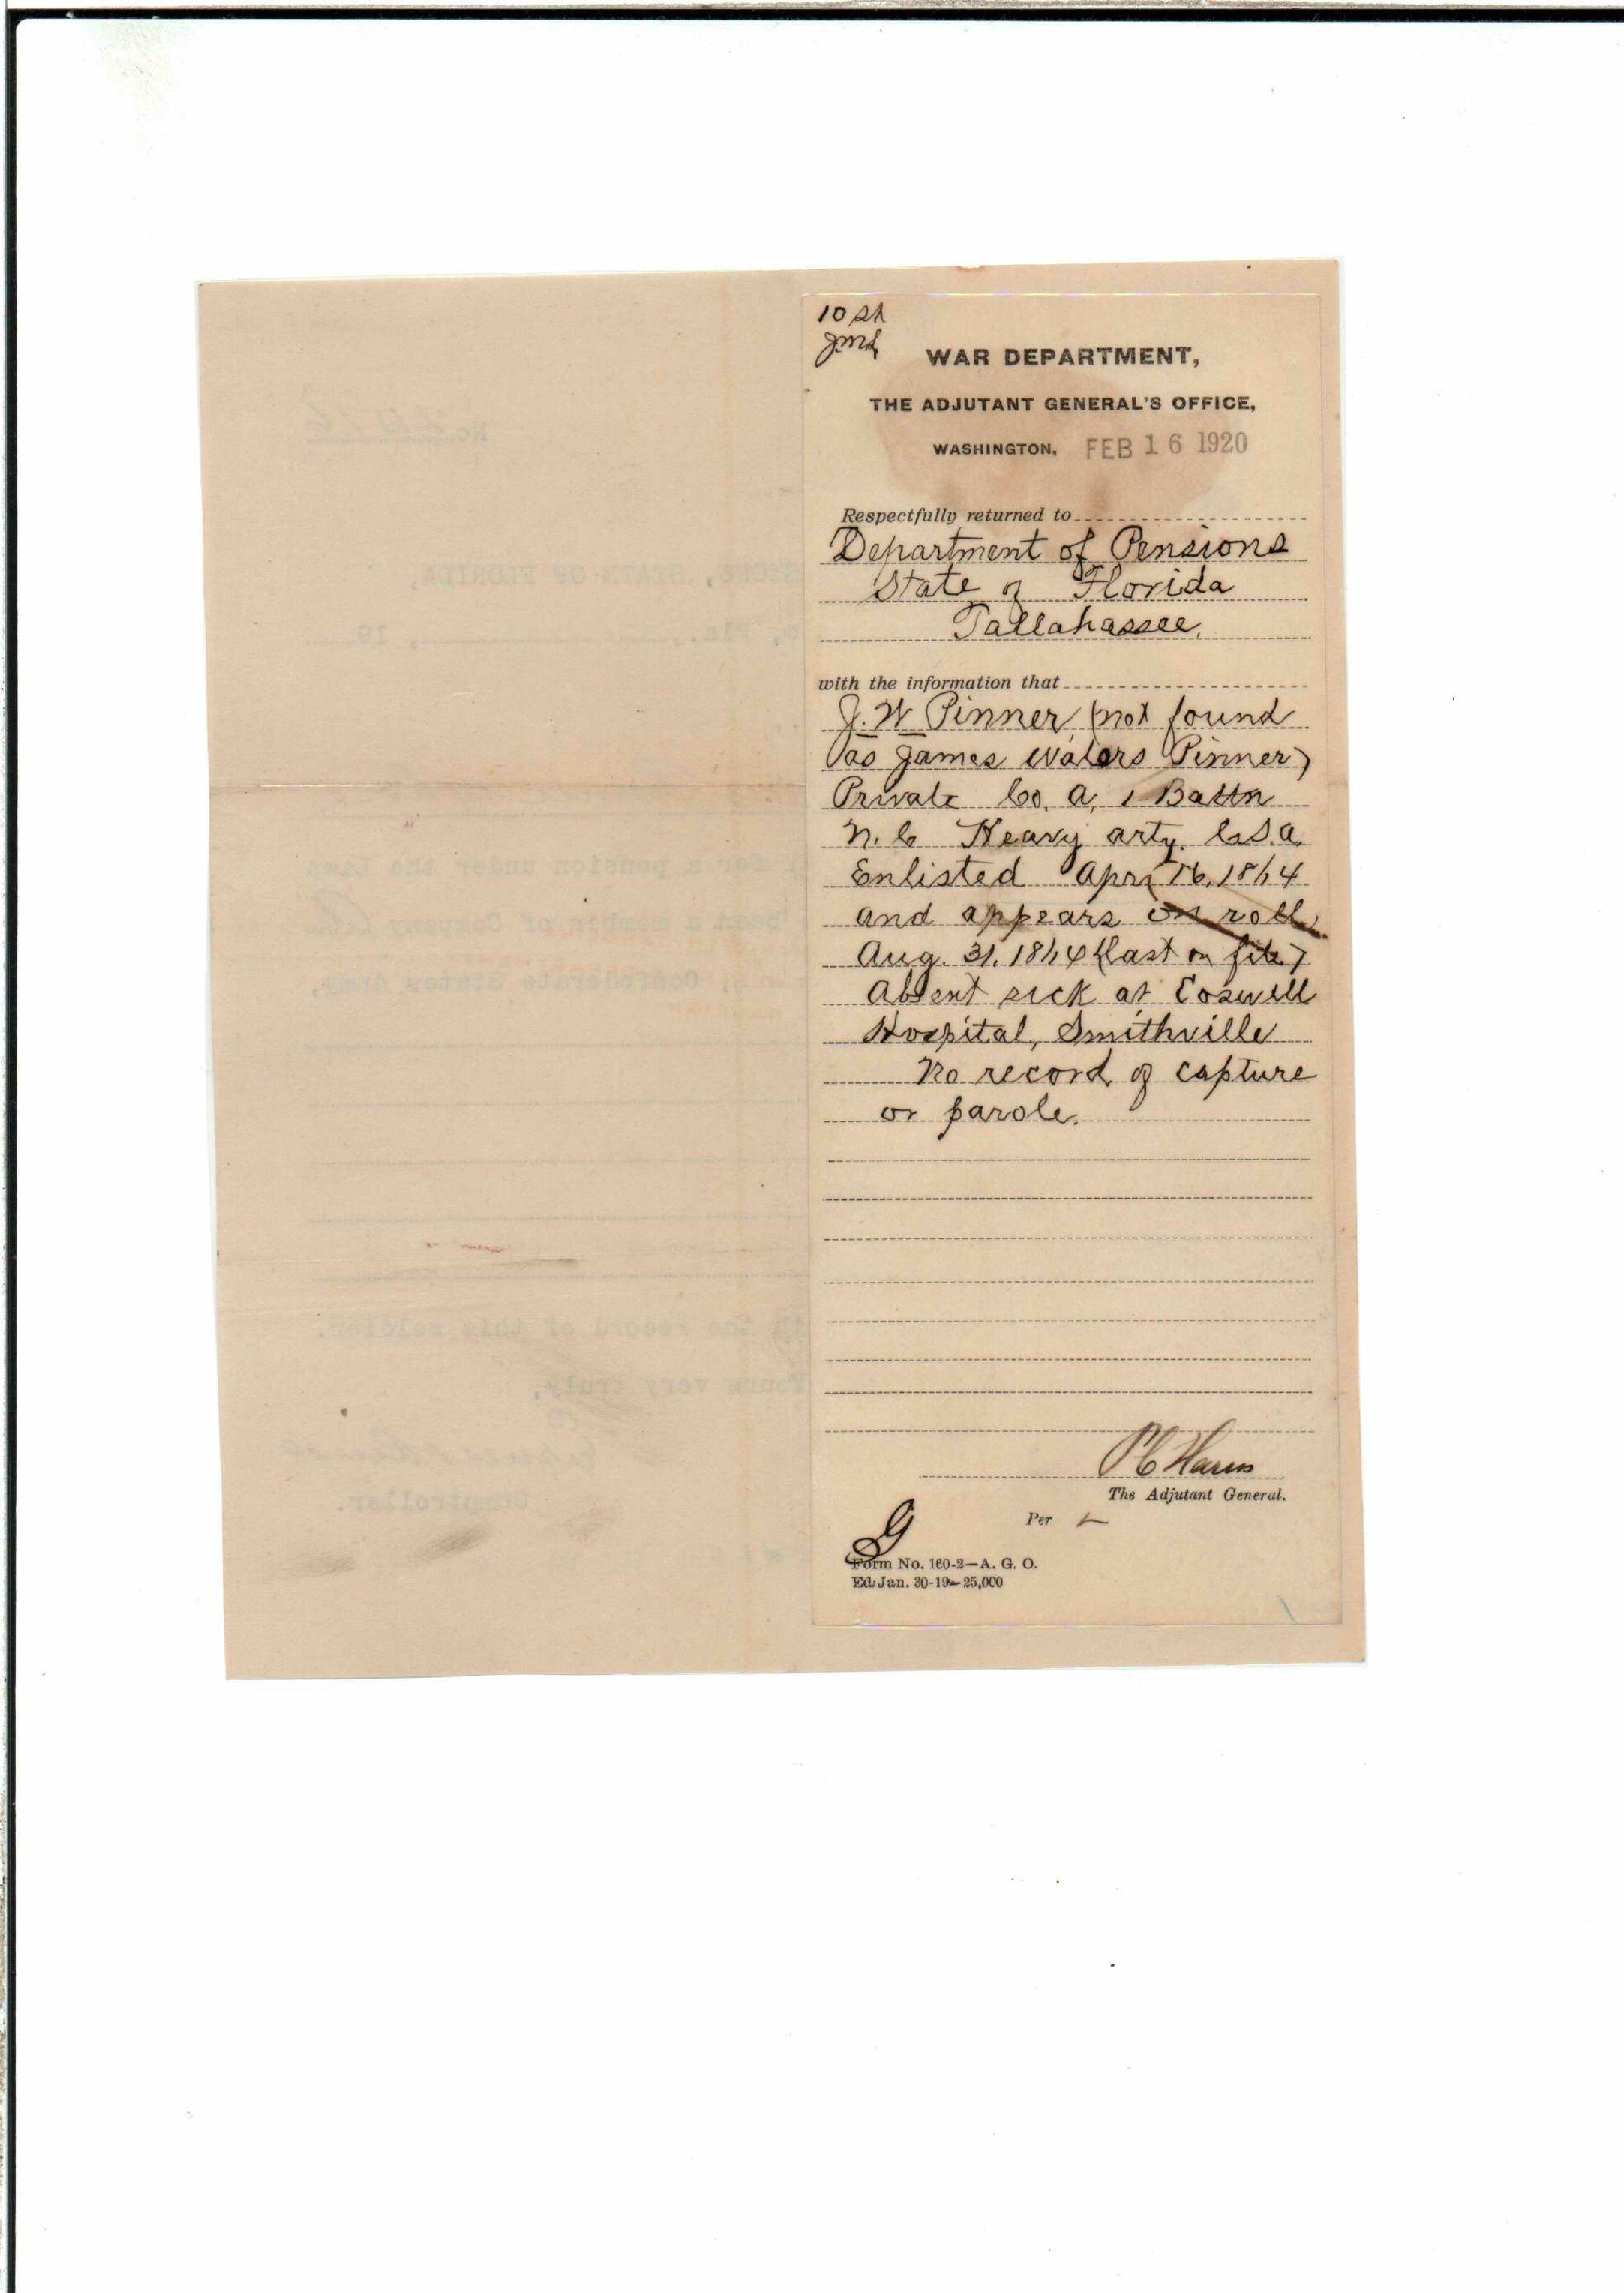 10 
WAR DEPARTMENT,
THE ADJUTANT GENERAL'S OFFICE,
WASHINGTON, FEB 16 1920
Respectfully returned to
Department of Pensions
State of Florida
Tallahassee.
with the information that
J. W Pinner (not found
as James Waters Pinner)
Private Co. A, 1 Battn
N. C Heavy arty. C.S.a.
Enlisted April 16, 1864
and appears on roll,
Aug. 31. 1864 (last on file)
Absent sick at Coswell
Hospital, Smithville
No record of capture
or parole.
P C Harris
The Adjutant General.
Per
G
Form No. 160-2—A. G. O.
Ed. Jan. 30-19—25,000
STATE OF FLORIDA,
, Fla., , 19
for a pension under the Law
been a member of Company
, Confederate States Army,
the record of this soldier.
Yours very truly,
Comptroller.